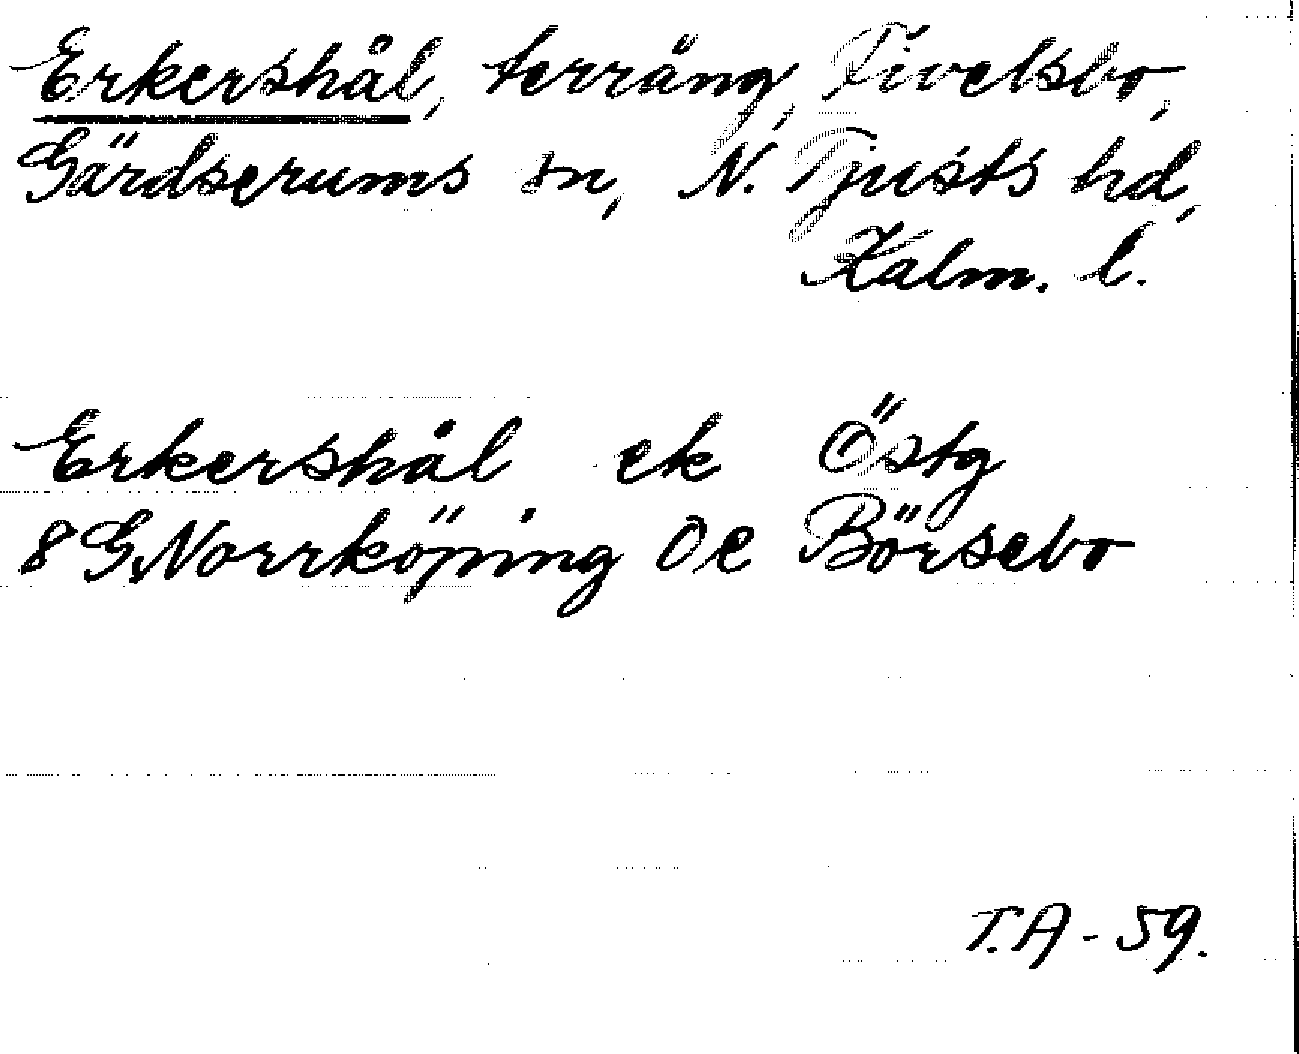 Erkershål, terräng, Fivelsbo,
Gärdserums sn, N. Tjusts hd,
Kalm. l.
Erkershål ek Östg
8 G Norrköping 0 e Börsebo
T.A - 59.